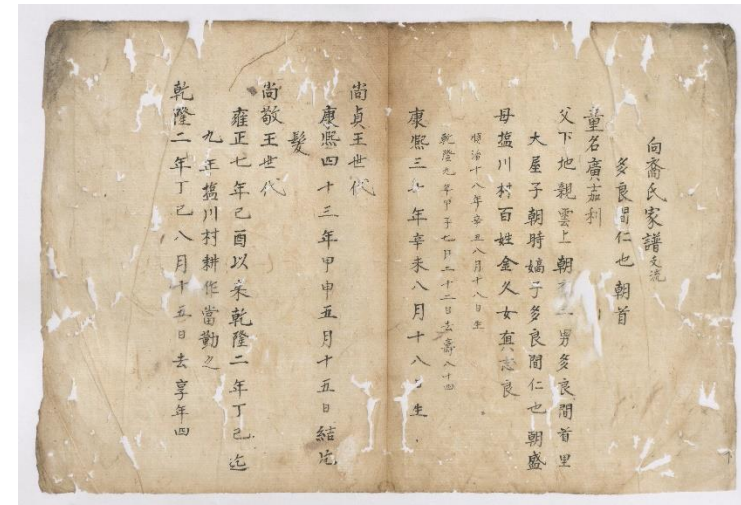 向裔氏家譜支流
多良間仁也朝首
童名廣嘉利
父下地親雲上朝 男多良間首里
大屋子朝時嫡子多良間仁也朝盛
母塩川村百姓金久女真志良
順治十八年辛丑八月十八日生
乾隆九年甲子七月二十二日去壽八十四
康熙三十年辛未八月十八日生
尚貞王世代
康熙四十三年甲申五月十五日結片
髮
尚敬王世代
雍正七年己酉以来乾隆二年丁巳迄
九年塩川村耕作當勤之
乾隆二年丁巳八月十五日去享年四